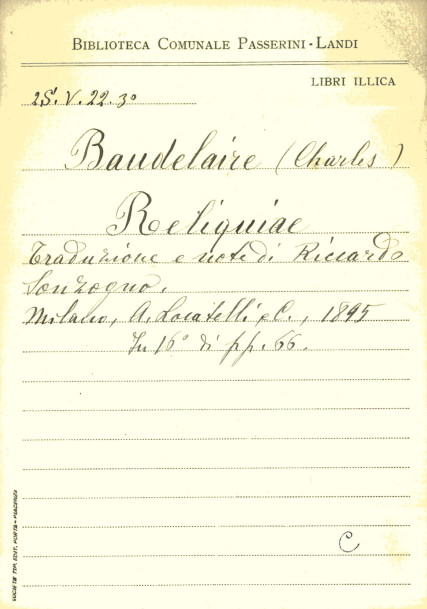 BIBLIOTECA COMUNALE PASSERINI-LANDI
LIBRI ILLICA
2S. V. 22. 3º
Baudelaire (Charles)
Reliquiae
Traduzione e note di Riccardo
Sonzogno.
Milano, A. Locatelli e C., 1895
In 16º di pp. 66.
C
SOCIETÀ TIP. EDIT. PORTA - PIACENZA